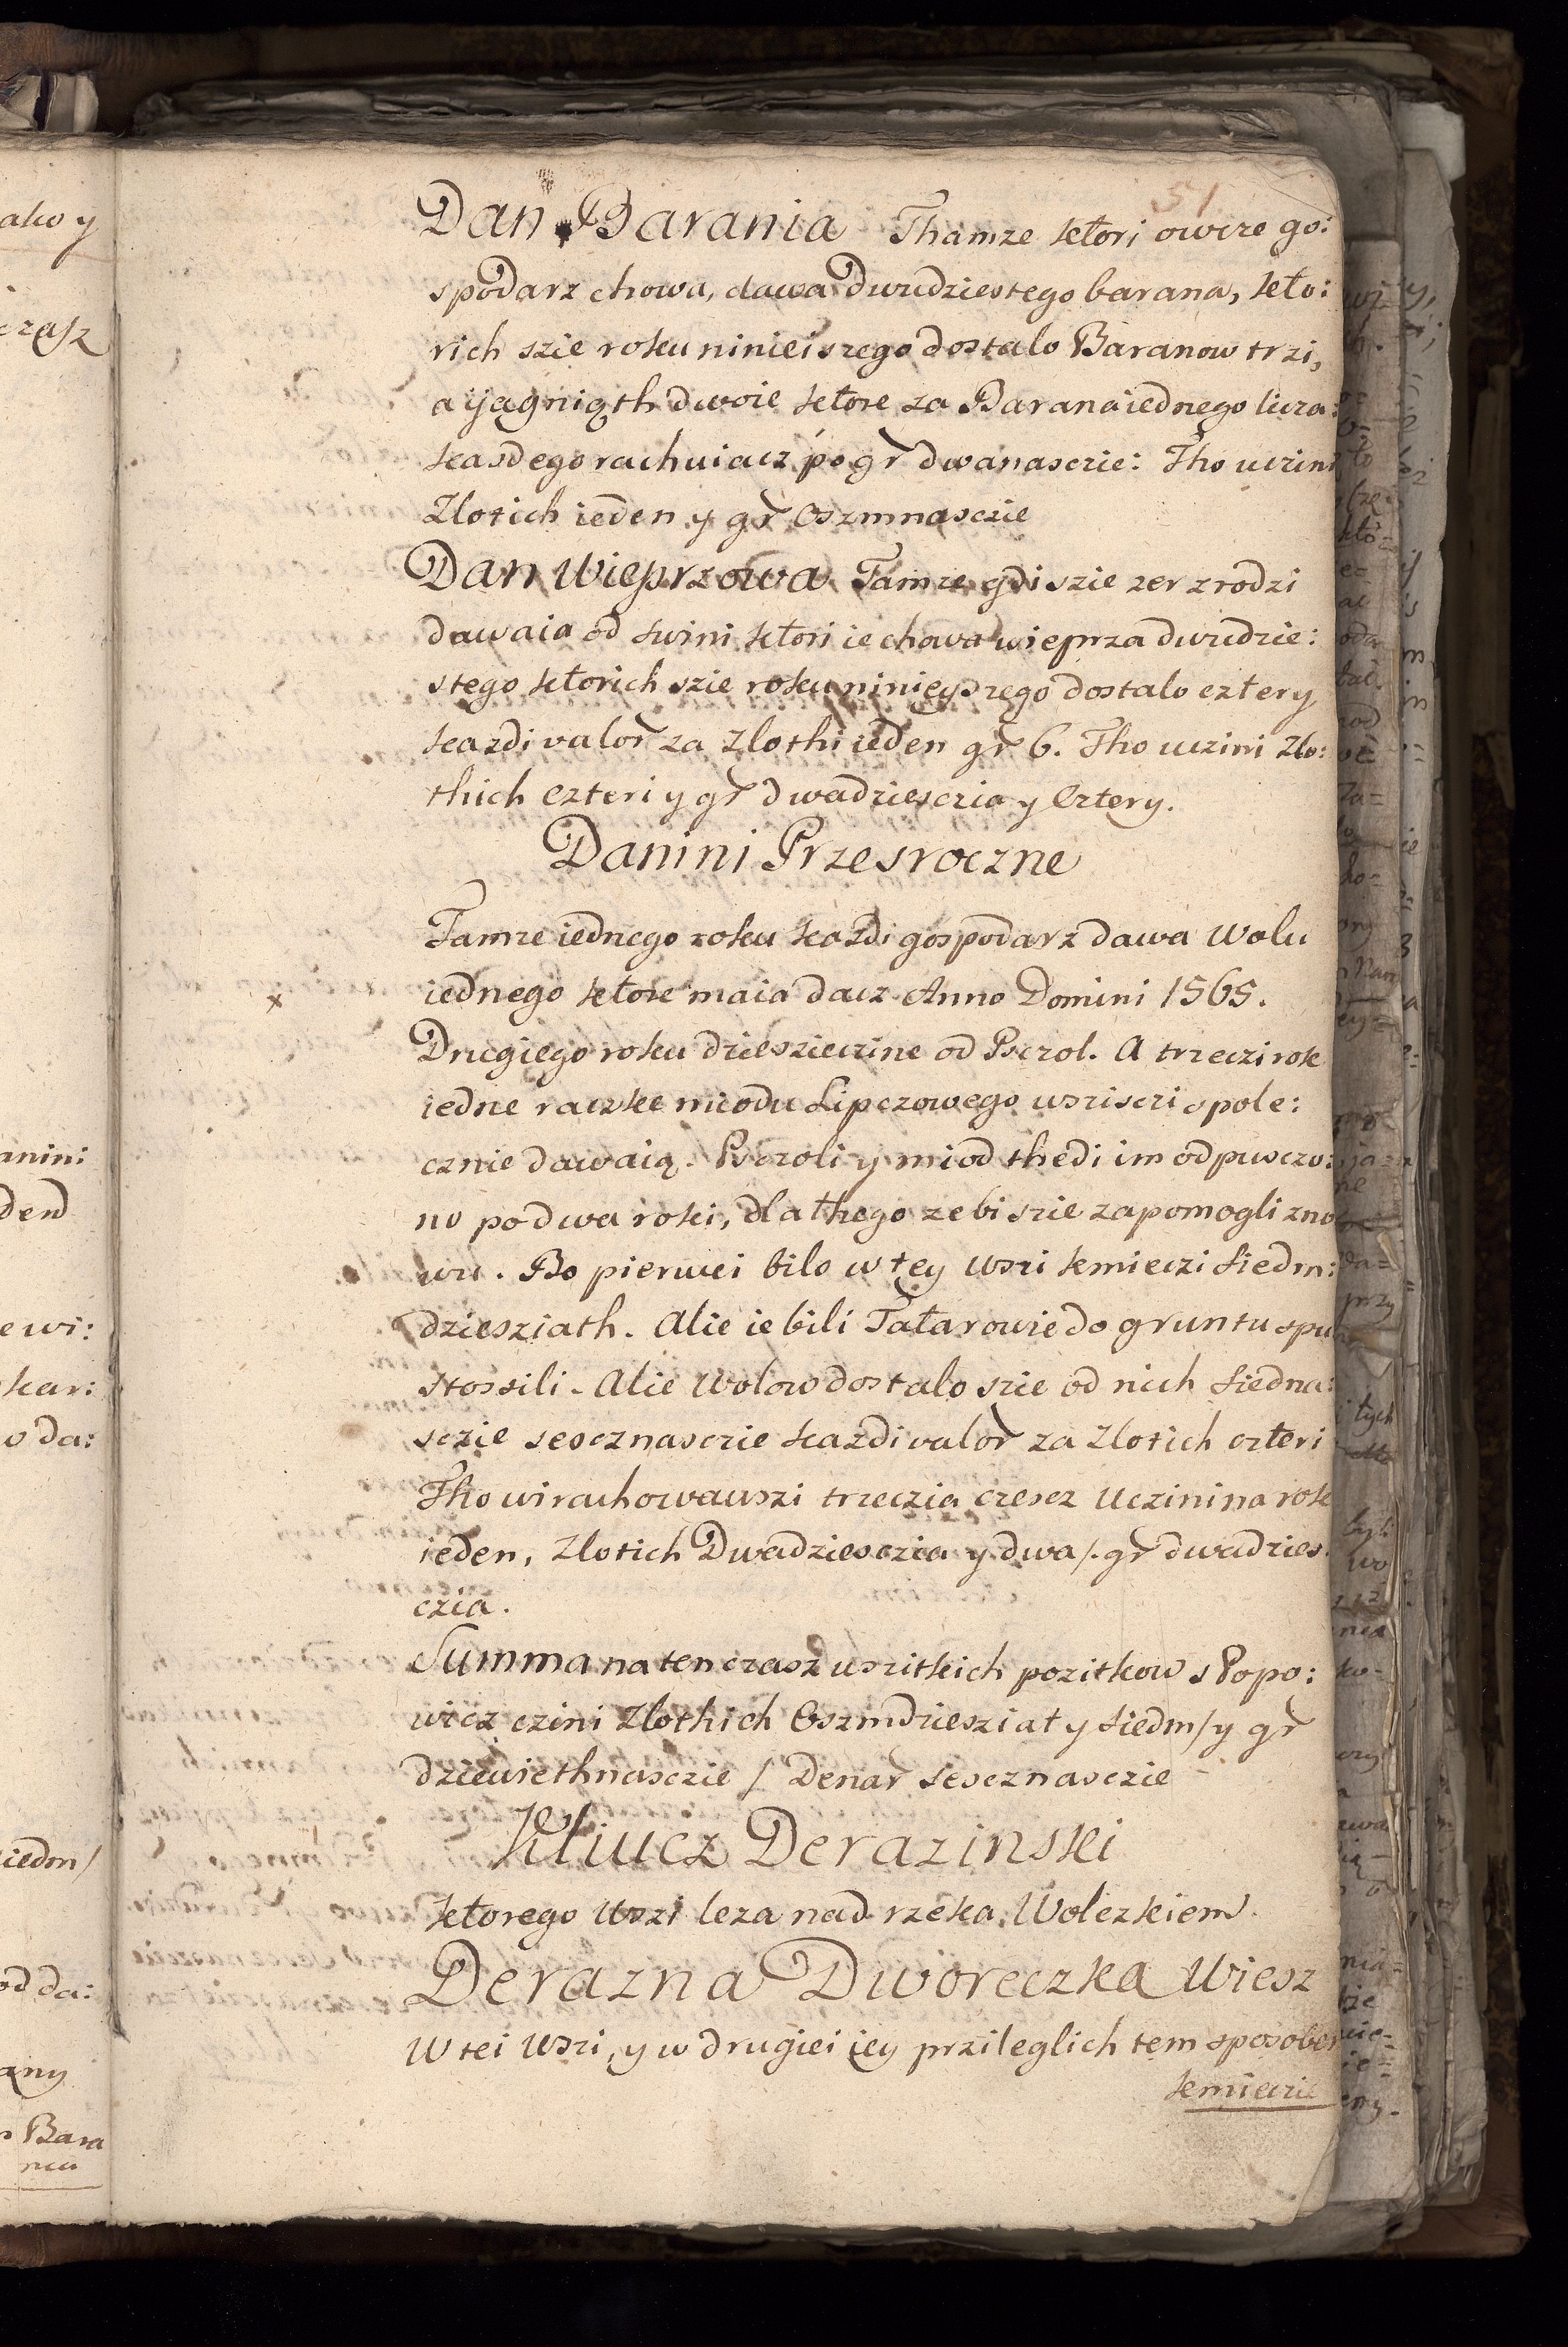 51
Dan Barania Thamze ktori owcze go:
spodarz chowa, dawa dwudziestego barana, kto:
rich szie roku ninieiszego dostalo Baranow trzi,
a ijagniąth dwoie ktore za Barana iednego licza:
kasdego rachuiacz po gr dwanasczie: Tho uczini
Zlotich ieden y gr Oszmnasczie
Dan Wieprzowa Tamze gdi szie zer zrodzi
dawaia od swini ktori ie chowa wieprza dwudzie:
stego ktorich szie roku ninieyszego dostalo cztery
kazdi valor za zlothi ieden gr 6. Tho uczini Zlo:
thich czteri y gr dwadziesczia y cztery.
Danini Przesroczne
Tamze iednego roku kazdi gospodarz dawa Wolu
x iednego ktore maia dacz Anno Domini 1565.
Drugiego roku dzieszieczine od Psczol. A trzeczi rok
iedne raczke miodu Lipczowego wsziscri spole:
cznie dawaią. Psczoli y miod thedi im odpusczo:
no po dwa roki, dla thego zebi szie zapomogli zno
wu. Bo pierwei bilo w tey wszi kmieczi siedm:
dziesziath. Alie ie bili Tatarowie do gruntu spu
stossili. Alie Wolow dostalo szie od nich siedna:
sczie sescznasczie kazdi valor za Zlotich czteri
Tho wirachowawszi trzeczia czescz Uczini na rok
ieden, Zlotich Dwadziesczia y dwa /. gr dwadzies:
czia.
Summa na ten czasz wszitkich pozitkow s Popo:
wicz czini Zlothich Oszmdziesziat y siedm / y gr
dziewiethnasczie / Denar sescznasczie
Kliucz Derazinski
ktorego wszi leza nad rzeka Wolczkiem.
Derazna Dworeczka Wiesz
W tei Wszi, y w drugiei iey przileglich tem sposobem
kmieczie